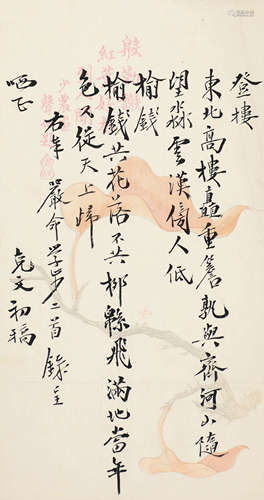 登樓
東北高樓矗重簷孰與齊河山隨
望淼雲漢傍人低
榆錢
榆錢共花落不共柳緜飛滿地當年
色不從天上歸
右奉嚴命学步二首錄呈
哂正
克文初稿